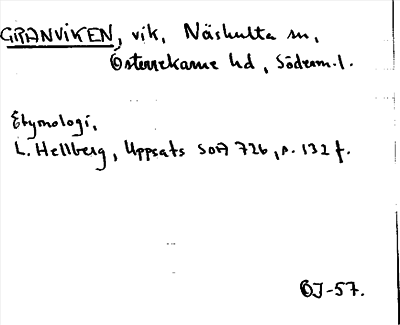 GRANVIKEN, vik, Näshulta sn,
Österrekarne hd, Söderm.l.
Etymologi,
L. Hellberg, Uppsats SOA 726, s. 132 f.
ÖJ-57.